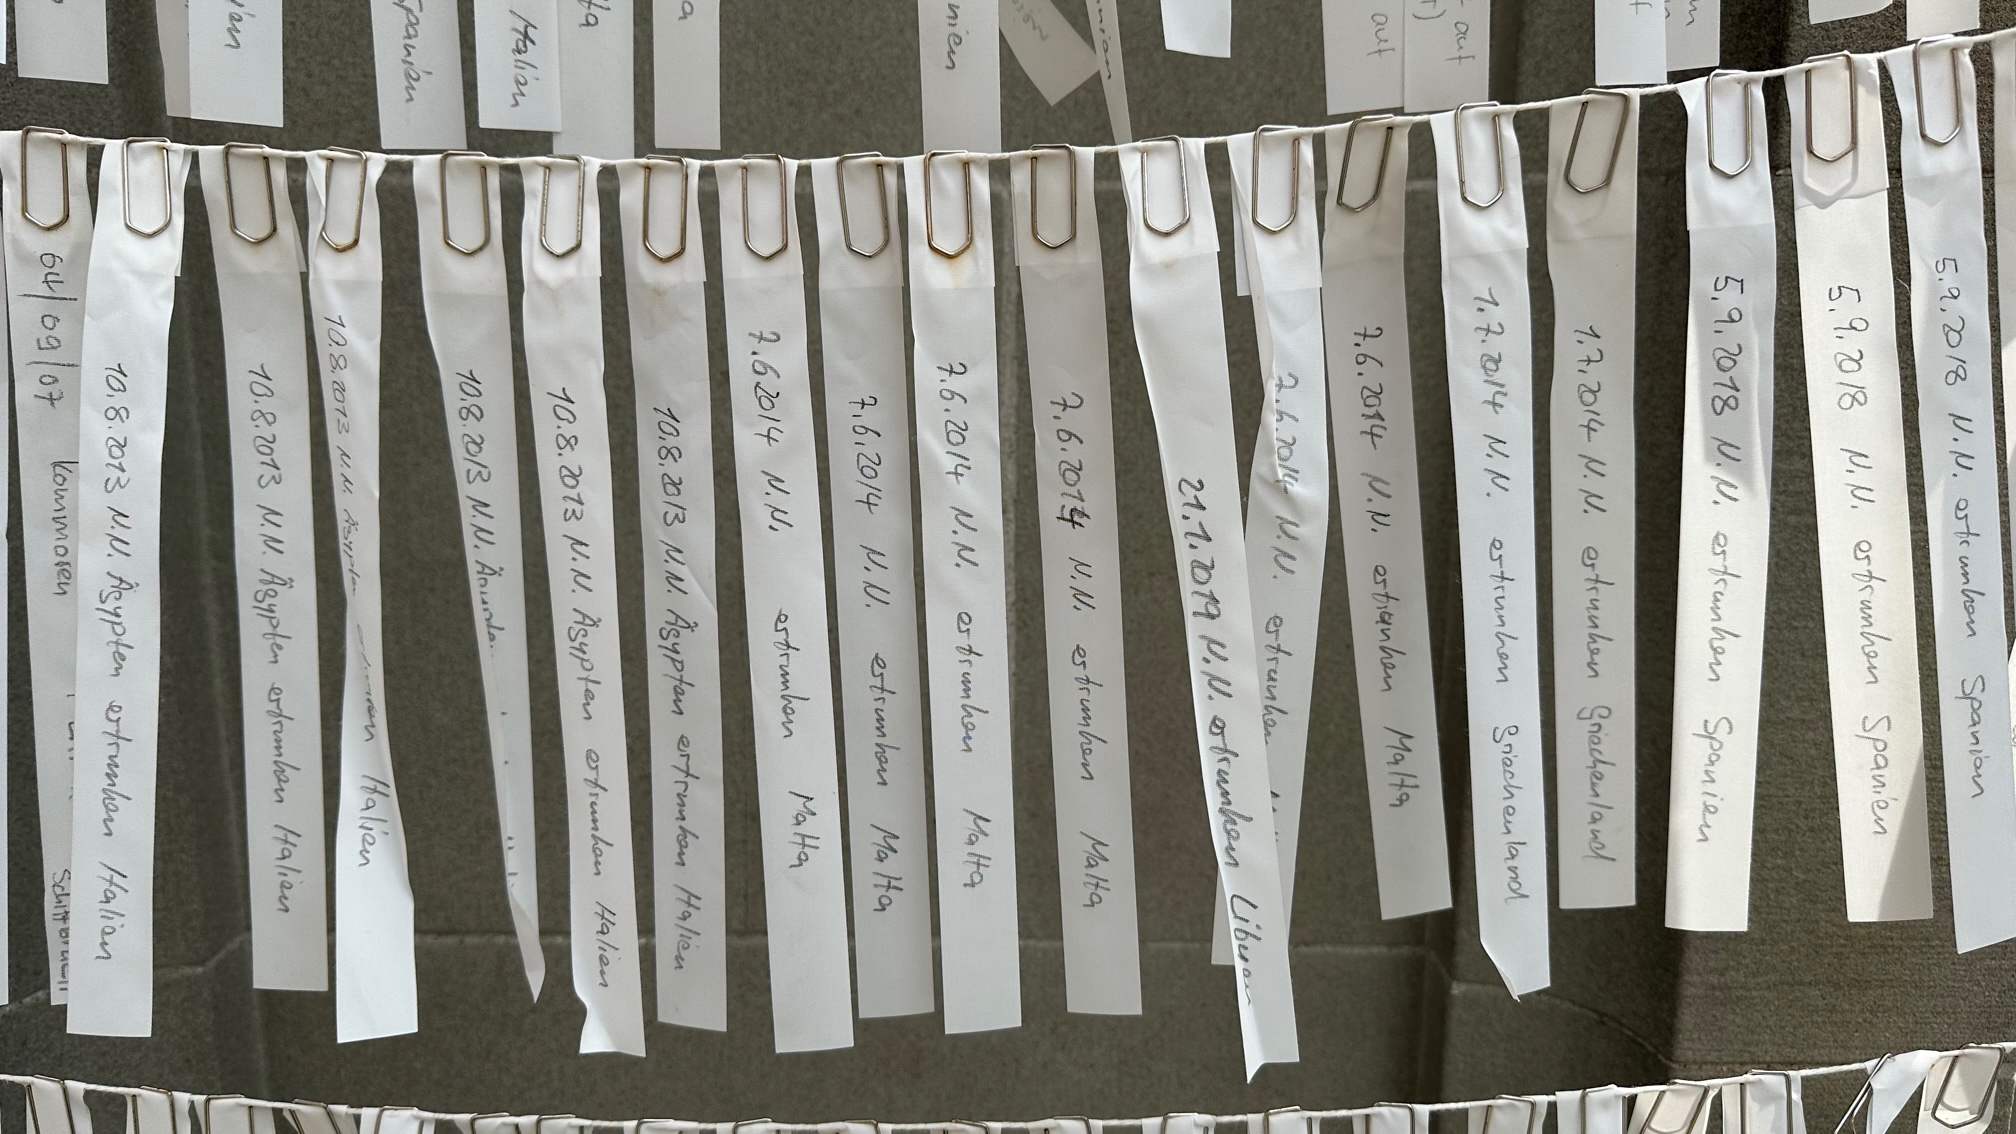 auf
auf
Italien
Spanien
64/09/07 Kommoren
10.8.2013 N.N. Ägypten ertrunken Italien
10.8.2013 N.N. Ägypten ertrunken Italien
10.8.2013 N.N. Ägypten Italien
10.8.2013 N.N.
10.8.2013 N.N. Ägypten ertrunken Italien
10.8.2013 N.N. Ägypten ertrunken Italien
7.6.2014 N.N. ertrunken Malta
7.6.2014 N.N. ertrunken Malta
7.6.2014 N.N. ertrunken Malta
7.6.2014 N.N. ertrunken Malta
21.1.2019 N.N. ertrunken Libyen
7.6.2014 N.N. ertrunken
7.6.2014 N.N. ertrunken Malta
1.7.2014 N.N. ertrunken Griechenland
1.7.2014 N.N. ertrunken Griechenland
5.9.2018 N.N. ertrunken Spanien
5.9.2018 N.N. ertrunken Spanien
5.9.2018 N.N. ertrunken Spanien